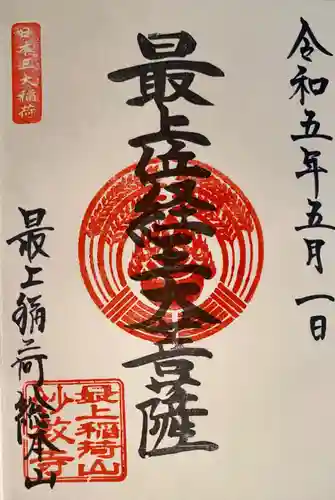 令和五年五月一日
最上位経王大菩薩
日本三大稲荷
最上稲荷総本山
最上稲荷山
妙教寺